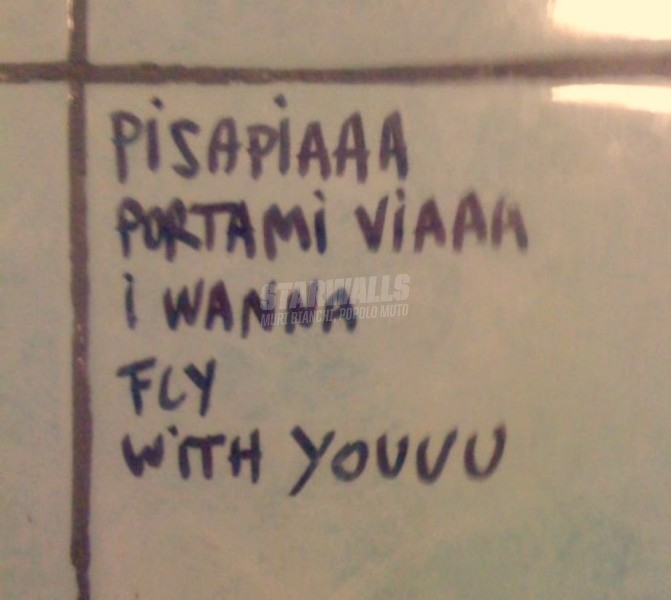 PiSAPiAAA
PORTAMi ViAAA
i WANNA
FLY
WiTH YOUUU
STARWALLS
MURI BIANCHI, POPOLO MUTO